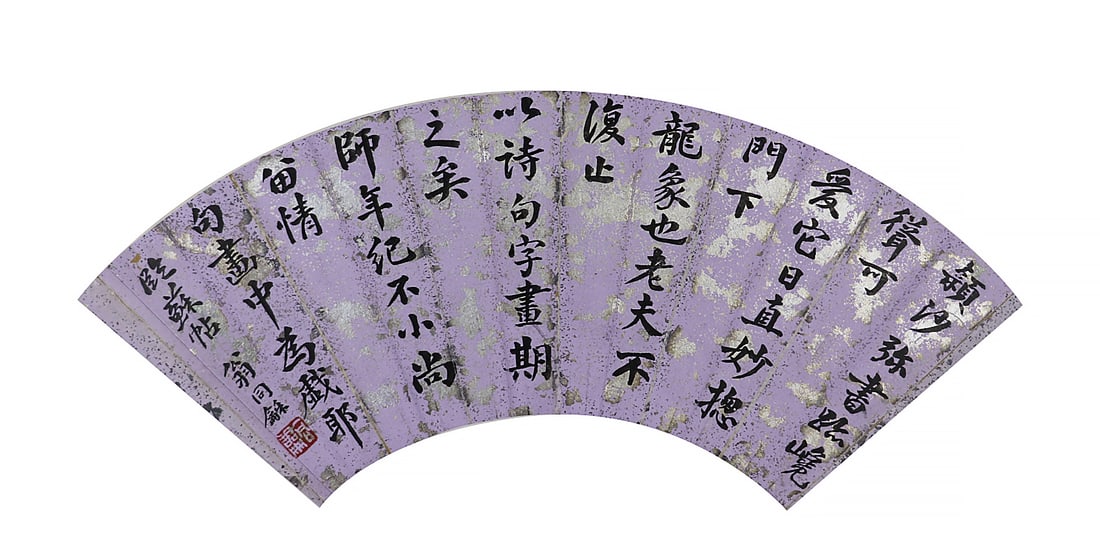 頴沙弥書跡巉
聳可
畏它日真妙揔
門下
龍象也老夫不
復止
以詩句字畫期
之矣
師年紀不小尚
留情
句畫中為戲耶
臨蘇帖 翁同龢